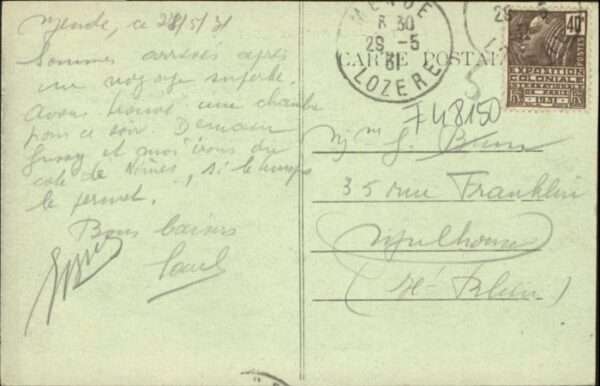 Mende, ce 28/5/31
Sommes arrivés après
un voyage superbe.
Avons trouvé une chambre
pour ce soir. Demain
et moi irons du
coté de Nimes, si le temps
le permet.
Bons baisers
Paul
MENDE
6 30
29 - 5
31
LOZERE
29 - 5
CARTE POSTALE
40c
EXPOSITION
COLONIALE
INTERNATIONALE
DE PARIS
1931
748150
35 rue Franklin
Mulhouse
(Ht Rhin)